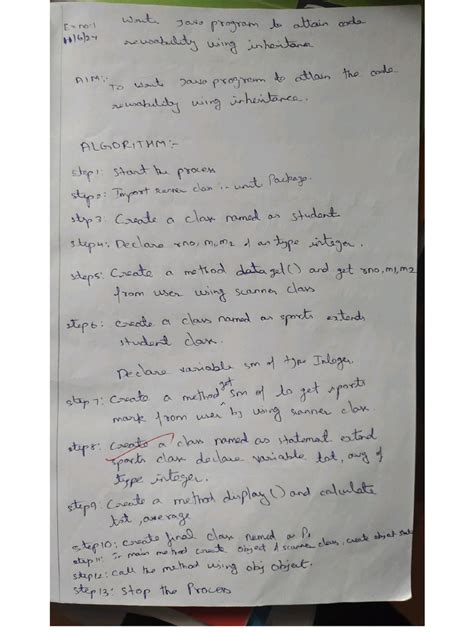 Ex no:1 Write Java program to attain code
11/6/24 reusability using inheritance
AIM:- To write Java program to attain the code
reusability using inheritance.
ALGORITHM:-
step 1: Start the process
step 2: Import scanner class util Package.
step 3: Create a class named as student
step 4: Declare rno, m1, m2 as type integer.
step 5: Create a method data get() and get rno, m1, m2
from user using scanner class
step 6: create a class named as sports extends
student class.
Declare variable sm of type Integer.
step 7: Create a method get sm of to get sports
mark from user by using scanner class.
step 8: Create a class named as statement extend
sports class declare variable tot, avg of
type integer.
step 9: Create a method display() and calculate
tot, average
step 10: create final class named as
step 11: In main method create object of scanner class, create object
step 12: call the method using obj object.
step 13: Stop the Process